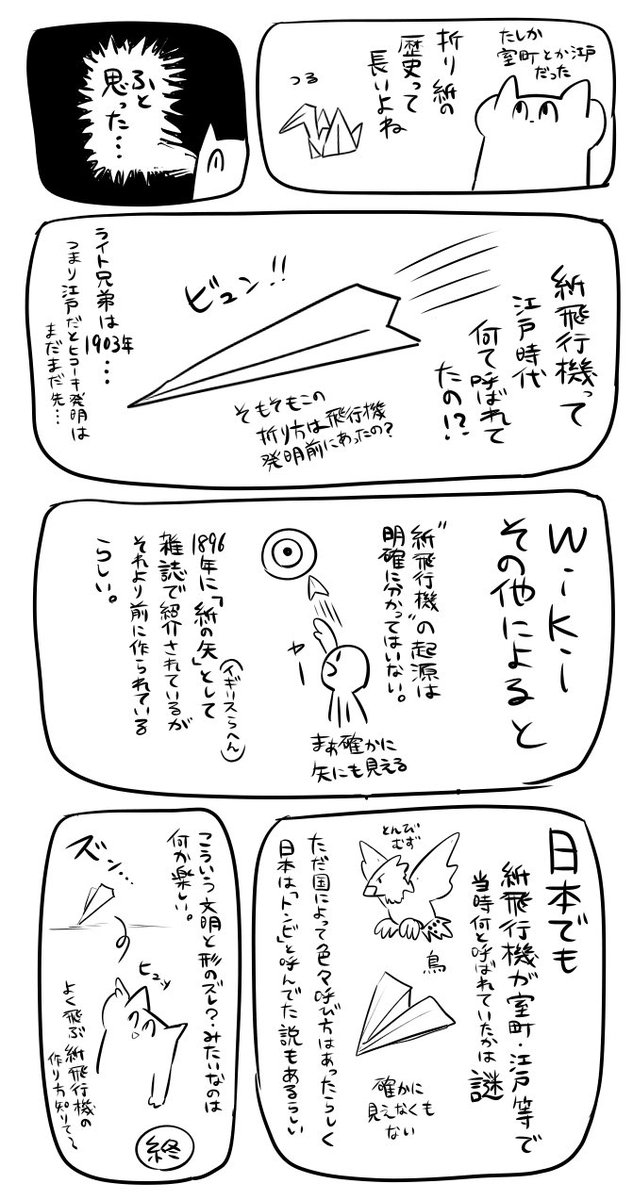 折り紙の
歴史って
長いよね
たしか
室町とか江戸
だった
つる
ふと
思った…
紙飛行機って
江戸時代
何て呼ばれて
たの!?
ビュン!!
そもそもこの
折り方は飛行機
発明前にあったの?
ライト兄弟は
1903年…
つまり江戸だとヒコーキ発明は
まだまだ先…
wiki
その他によると
"紙飛行機"の起源は
明確に分かってはいない。
ヤー
まぁ確かに
矢にも見える
1896年に「紙の矢」として
(イギリスらへん)
雑誌で紹介されているが
それより前に作られている
らしい。
日本でも
紙飛行機が室町・江戸等で
当時何と呼ばれていたかは謎
とんび
むず
鳥
確かに
見えなくも
ない
ただ国によって色々呼び方はあったらしく
日本は「トンビ」と呼んでた説もあるらしい
こういう文明と形のズレ?みたいなのは
何か楽しい。
ズン…
ヒュッ
よく飛ぶ紙飛行機の
作り方知りて〜
終